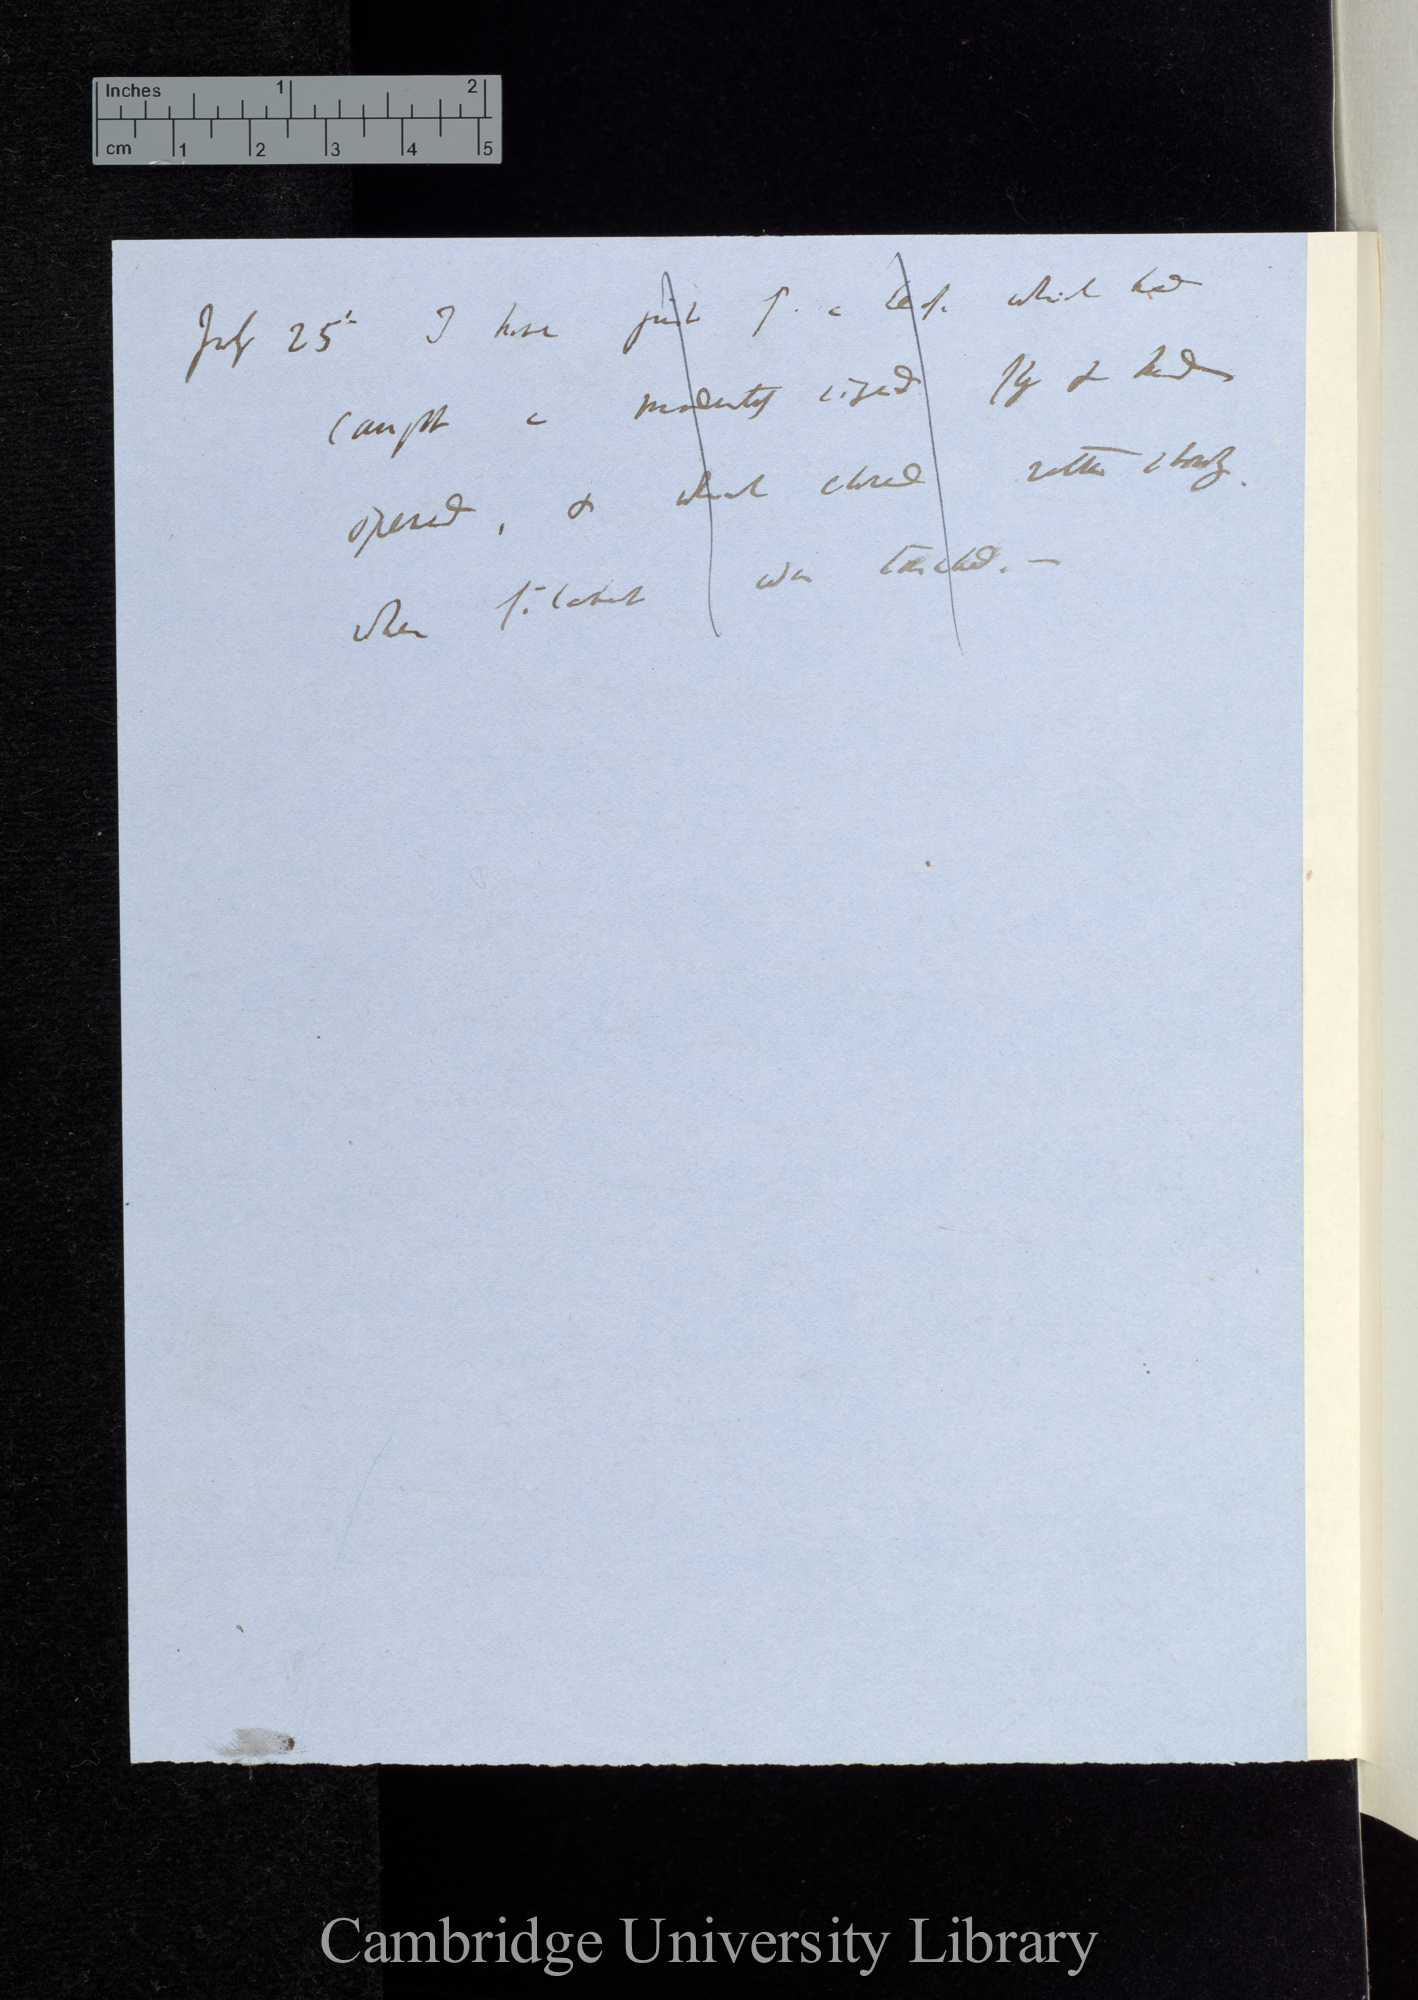 Inches 1 2
cm 1 2 3 4 5
July 25th I have just f. a leaf. which had
caught a moderately sized fly & had
opened, & which closed rather slowly.
when filament was touched. —
Cambridge University Library